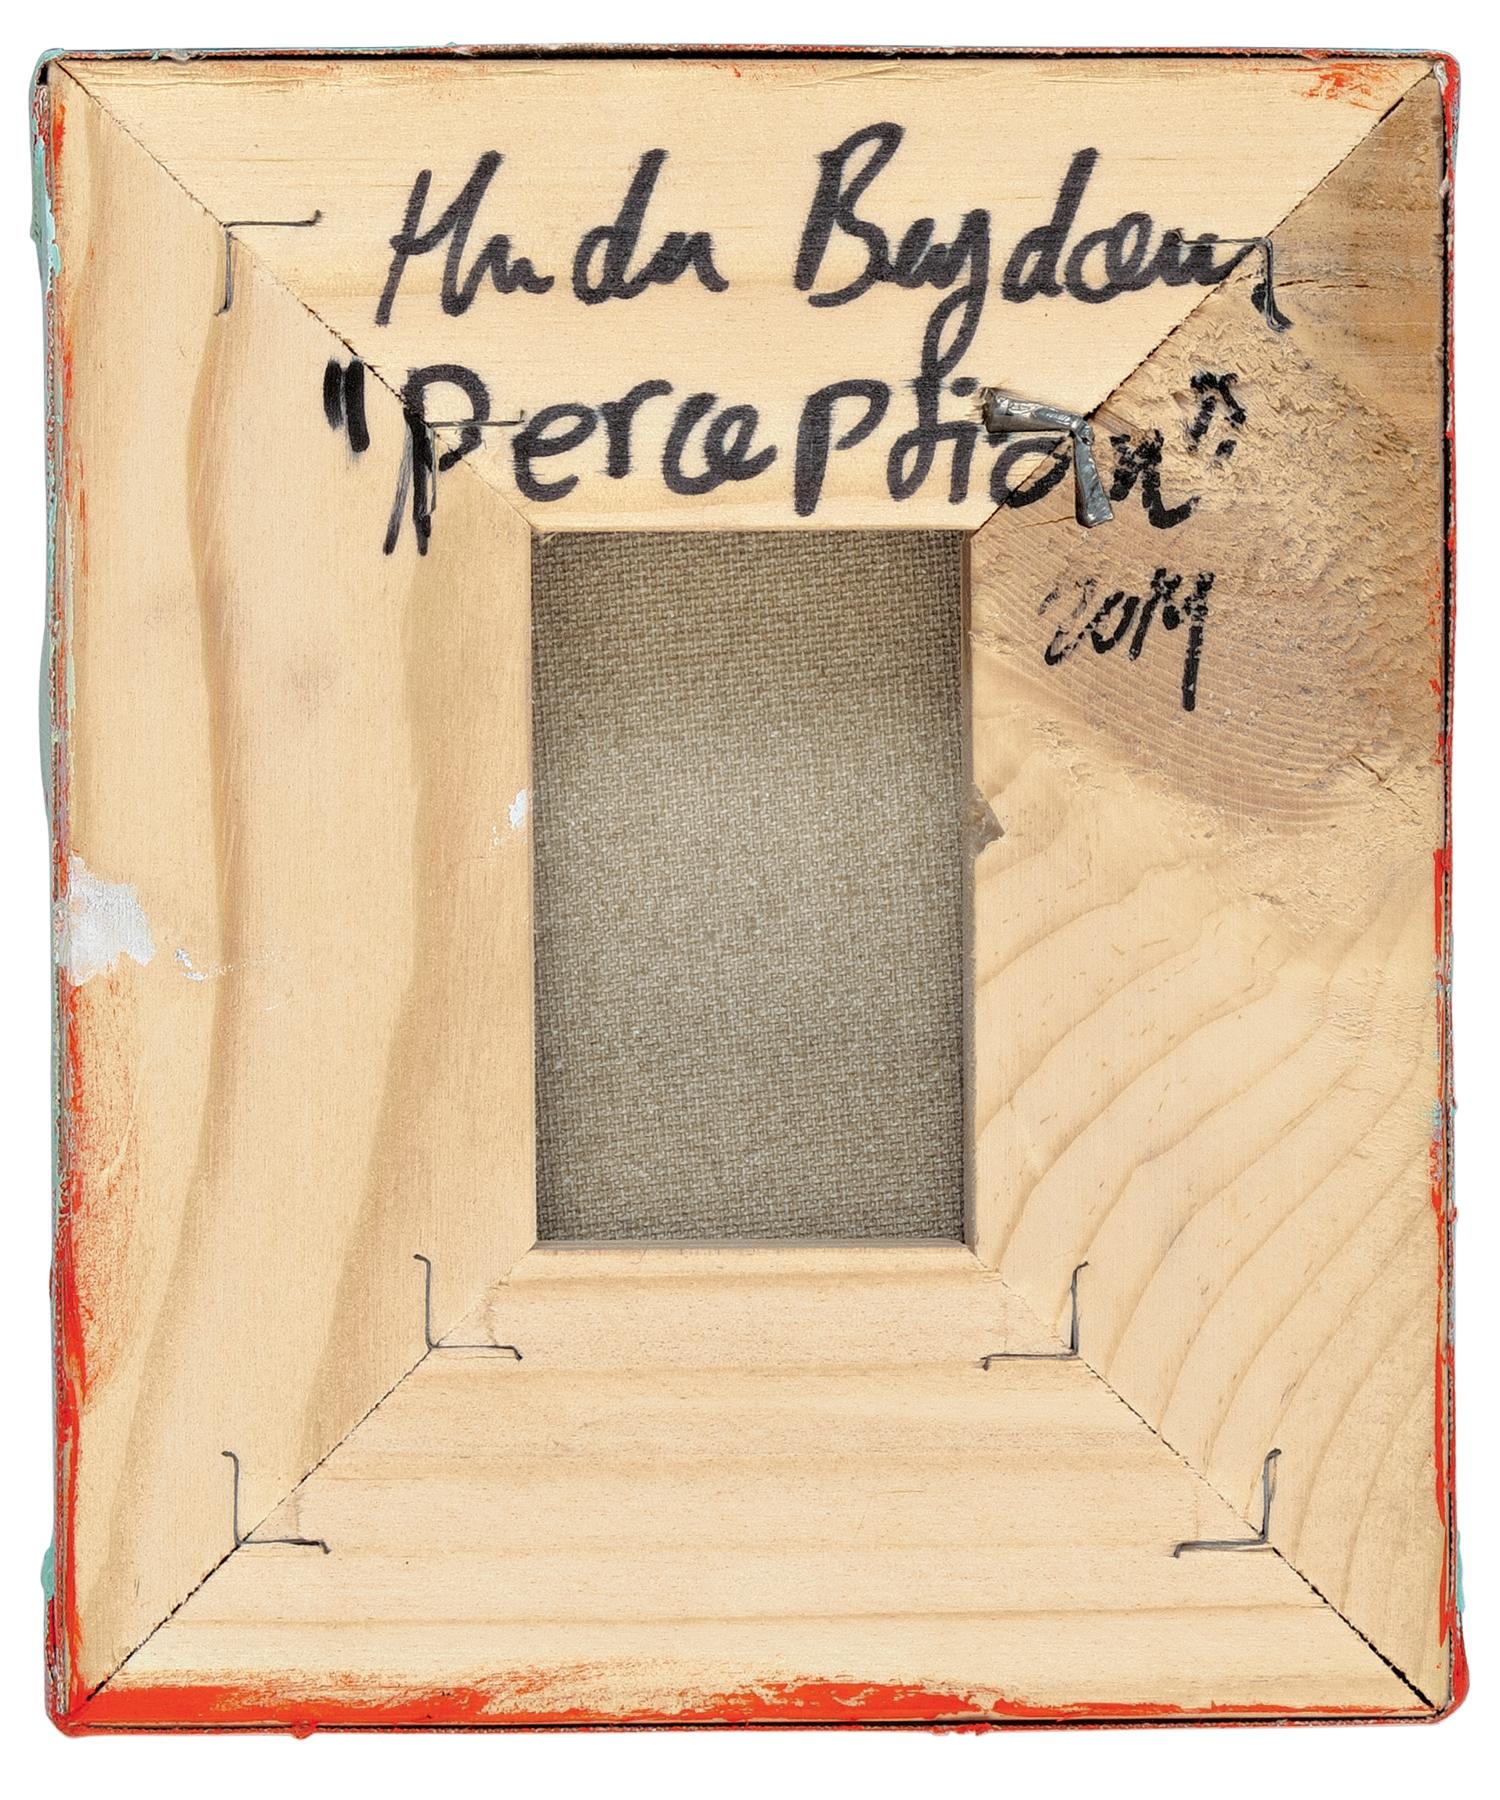 Huda Beydoun
"Perception"
2014